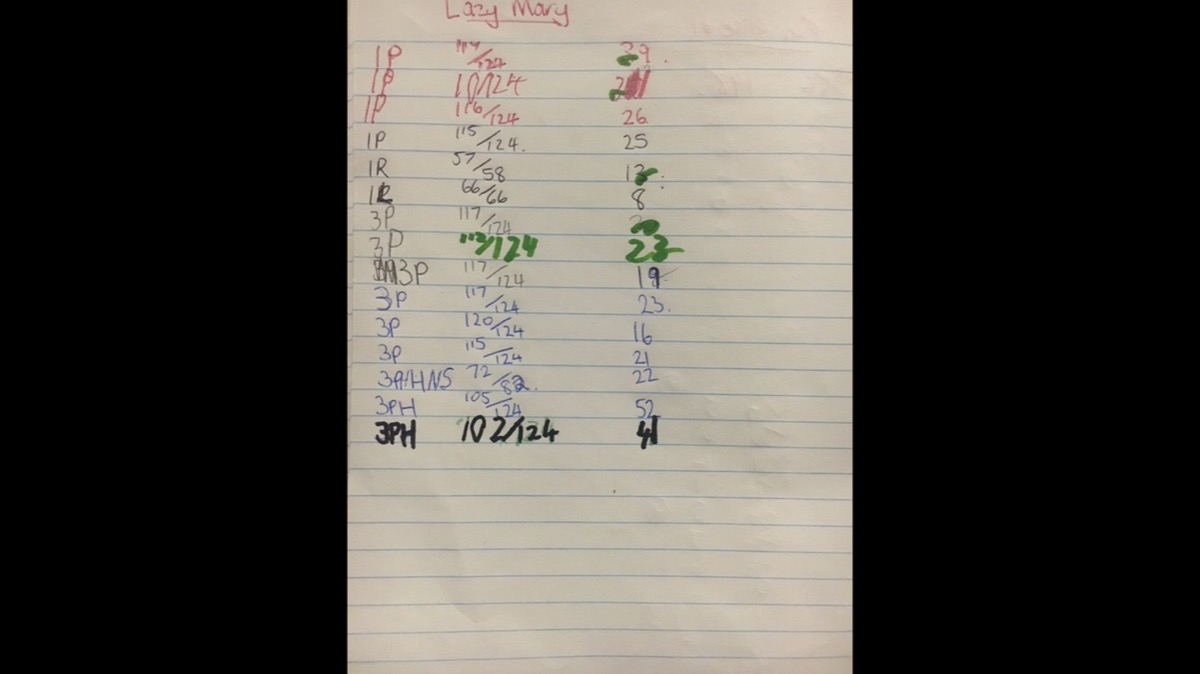 Lazy Mary
1P 117/124 29.
1P
1P 116/124 26
1P 115/124. 25
1R 57/58 13
1R 66/66 8
3P 117/124
3P 113/124 23
3P 117/124 19
3P 117/124 23.
3P 120/124 16
3P 115/124 21
72/82. 22
3PH 105/124 52
3PH 102/124 41